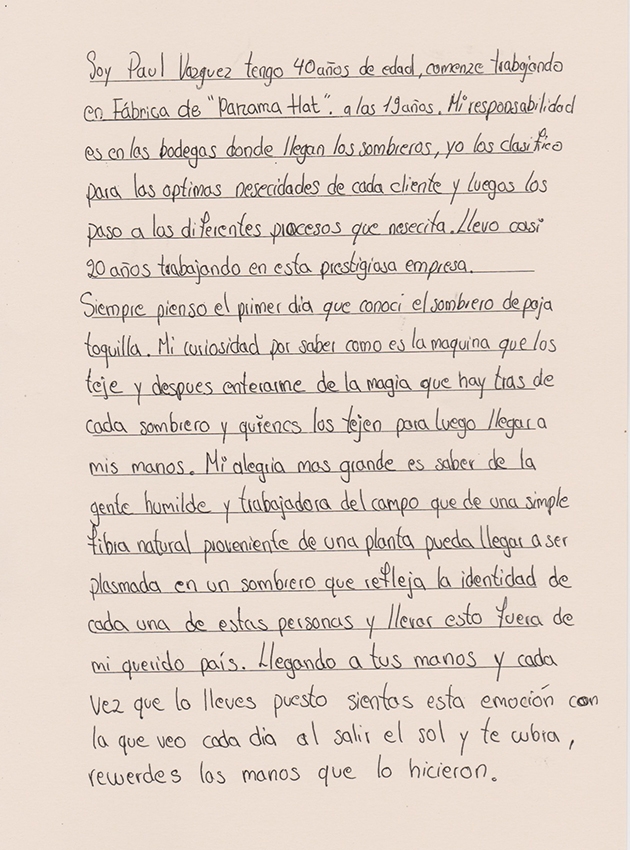 Soy Paul Vazguez tengo 40 años de edad, comenze trabajando
en Fábrica de "Panama Hat". a las 19 años. Mi responsabilidad
es en las bodegas donde llegan los sombreros, yo los clasifico
para las optimas nesecidades de cada cliente y luegos los
paso a los diferentes procesos que nesecita. Llevo casi
20 años trabajando en esta prestigiosa empresa.
Siempre pienso el primer dia que conoci el sombrero de paja
toquilla. Mi curiosidad por saber como es la maquina que los
teje y despues enterarme de la magia que hay tras de
cada sombrero y quienes los tejen para luego llegar a
mis manos. Mi alegria mas grande es saber de la
gente humilde y trabajadora del campo que de una simple
fibra natural proveniente de una planta pueda llegar a ser
plasmada en un sombrero que refleja la identidad de
cada una de estas personas y llevar esto fuera de
mi querido país. Llegando a tus manos y cada
vez que lo lleves puesto sientas esta emoción con
la que veo cada dia al salir el sol y te cubra,
recuerdes las manos que lo hicieron.